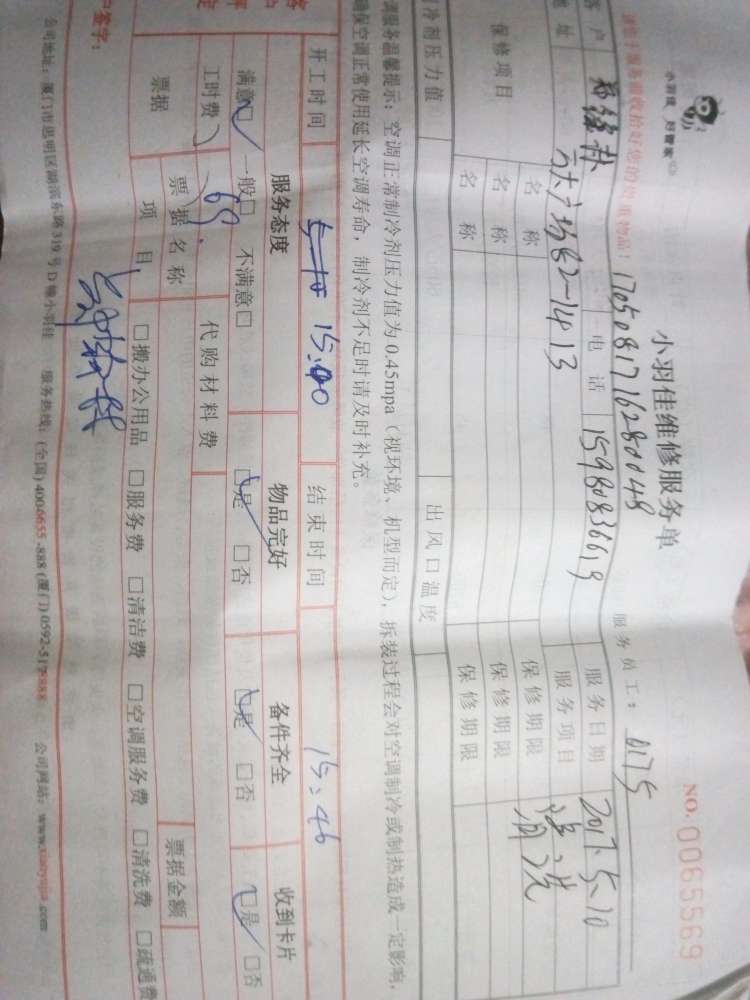 小羽佳 好管家
小羽佳维修服务单
NO. 0065569
请您于服务前收拾好您的贵重物品!
1705081716280048
服务员工: 0175
客户
电话 15980836619
服务日期 2017.5.10
地址
广场B2-1413
服务项目 清洗
保修项目
名称
保修期限
名称
保修期限
名称
保修期限
制冷剂压力值
出风口温度
调服务温馨提示: 空调正常制冷剂压力值为0.45mpa(视环境、机型而定), 拆装过程会对空调制冷或制热造成一定影响,
确保空调正常使用延长空调寿命, 制冷剂不足时请及时补充。
开工时间 15:00
结束时间 15:46
服务态度
物品完好
备件齐全
收到卡片
满意□ 一般□ 不满意□
□是 □否
□是 □否
□是 □否
工时费 60
代购材料费
票据
票据名称
票据金额
项目
□搬办公用品 □服务费 □清洁费 □空调服务费 □清洗费 □疏通费
户签字:
公司地址: 厦门市思明区湖滨东路319号D幢小羽佳 服务热线: (全国) 4006655-888 (厦门) 0592-5178888 公司网站: www.xiaoyujia.com